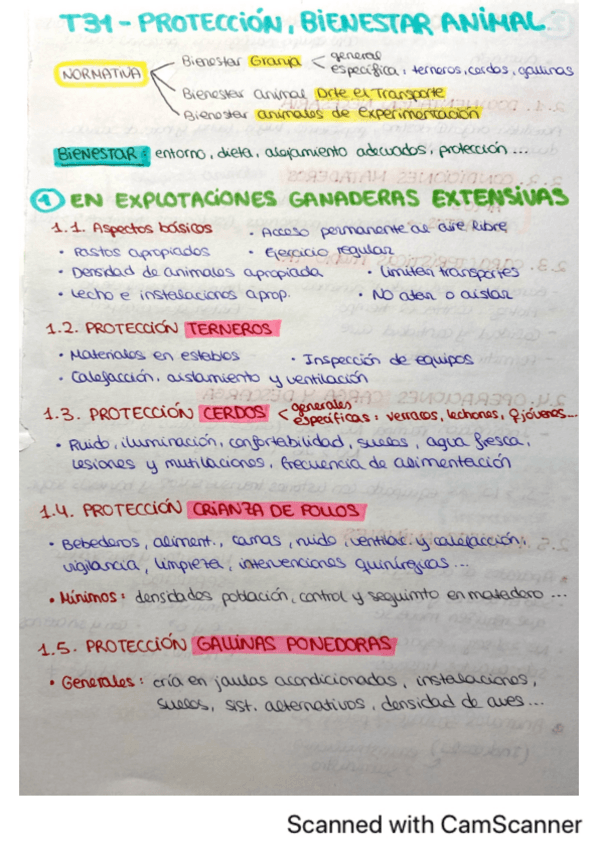 T31 - PROTECCIÓN, BIENESTAR ANIMAL.
NORMATIVA
Bienestar Granja < general
específica: terneros, cerdos, gallinas
Bienestar animal Drte el Transporte
Bienestar animales de experimentación
BIENESTAR: entorno, dieta, alojamiento adecuados, protección...
1 EN EXPLOTACIONES GANADERAS EXTENSIVAS
1.1. Aspectos básicos
• Acceso permanente al aire libre
• Pastos apropiados
• Ejercicio regular
• Densidad de animales apropiada
• Limiten transportes
• Lecho e instalaciones aprop.
• No atar o aislar
1.2. PROTECCIÓN TERNEROS
• Materiales en establos
• Inspección de equipos
• Calefacción, aislamiento y ventilación
1.3. PROTECCIÓN CERDOS < generales
específicas: verracos, lechones, ♀ jóvenes...
• Ruido, iluminación, confortabilidad, suelos, agua fresca,
lesiones y mutilaciones, frecuencia de alimentación
1.4. PROTECCIÓN CRIANZA DE POLLOS
• Bebederos, aliment., camas, ruido, ventilac y calefacción,
vigilancia, limpieza, intervenciones quirúrgicas...
• Mínimos: densidades población, control y seguimto en matadero...
1.5. PROTECCIÓN GALLINAS PONEDORAS
• Generales: cría en jaulas acondicionadas, instalaciones,
suelos, sist. alternativos, densidad de aves...
Scanned with CamScanner